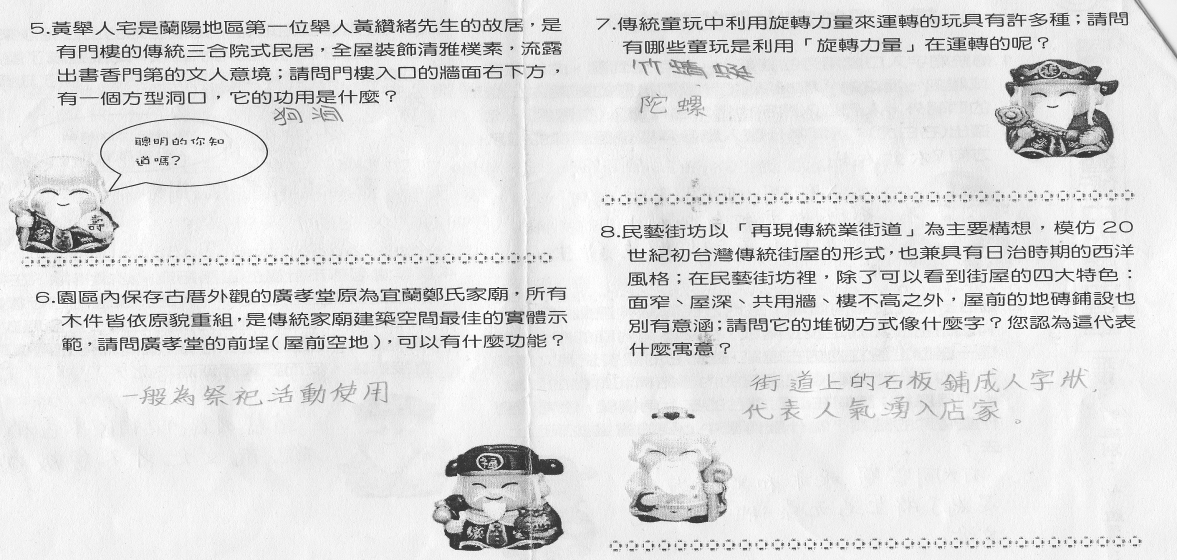 5.黃舉人宅是蘭陽地區第一位舉人黃纘緒先生的故居，是
有門樓的傳統三合院式民居，全屋裝飾清雅樸素，流露
出書香門第的文人意境；請問門樓入口的牆面右下方，
有一個方型洞口，它的功用是什麼？
狗洞
聰明的你知
道嗎?
壽
6.園區內保存古厝外觀的廣孝堂原為宜蘭鄭氏家廟，所有
木件皆依原貌重組，是傳統家廟建築空間最佳的實體示
範，請問廣孝堂的前埕(屋前空地)，可以有什麼功能？
一般為祭祀活動使用
福
7.傳統童玩中利用旋轉力量來運轉的玩具有許多種；請問
有哪些童玩是利用「旋轉力量」在運轉的呢？
竹蜻蜓
陀螺
8.民藝街坊以「再現傳統業街道」為主要構想，模仿 20
世紀初台灣傳統街屋的形式，也兼具有日治時期的西洋
風格；在民藝街坊裡，除了可以看到街屋的四大特色：
面窄、屋深、共用牆、樓不高之外，屋前的地磚鋪設也
別有意涵；請問它的堆砌方式像什麼字？您認為這代表
什麼寓意？
街道上的石板鋪成人字狀，
代表人氣湧入店家。